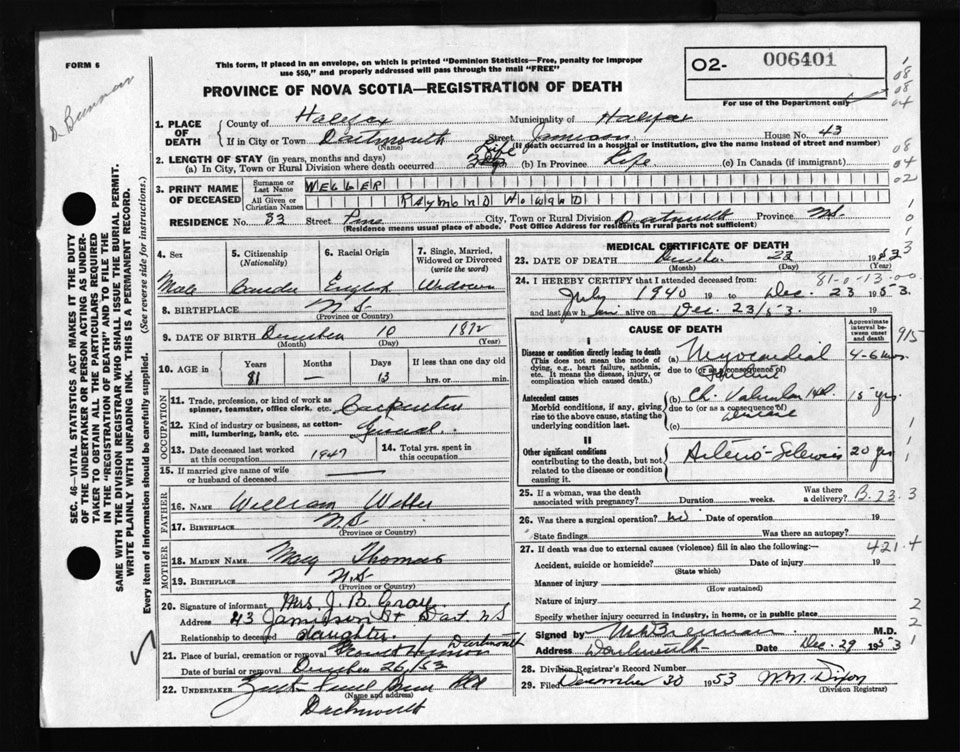 FORM 6
This form, if placed in an envelope, on which is printed "Dominion Statistics—Free, penalty for improper
use $50," and properly addressed will pass through the mail "FREE"
O2- 006401
For use of the Department only
PROVINCE OF NOVA SCOTIA—REGISTRATION OF DEATH
1. PLACE OF DEATH County of Halifax Municipality of Halifax
If in City or Town Dartmouth Street Jamieson House No. 43
(Name) (If death occurred in a hospital or institution, give the name instead of street and number)
2. LENGTH OF STAY (in years, months and days)
(a) In City, Town or Rural Division where death occurred Life (b) In Province Life (c) In Canada (if immigrant)
3. PRINT NAME OF DECEASED Surname or Last Name WELLER
All Given or Christian Names RAYMOND HOWARD
RESIDENCE No. 33 Street Pine City, Town or Rural Division Dartmouth Province N.S.
(Residence means usual place of abode. Post Office Address for residents in rural parts not sufficient)
4. Sex Male
5. Citizenship (Nationality) Canada
6. Racial Origin English
7. Single, Married, Widowed or Divorced (write the word) Widower
8. BIRTHPLACE N.S
(Province or Country)
9. DATE OF BIRTH December 10 1872
(Month) (Day) (Year)
10. AGE in Years 81 Months — Days 13 If less than one day old
hrs. or min.
11. Trade, profession, or kind of work as
spinner, teamster, office clerk, etc. Carpenter
12. Kind of industry or business, as cotton-
mill, lumbering, bank, etc. General.
13. Date deceased last worked at this occupation 1947
14. Total yrs. spent in this occupation
15. If married give name of wife
or husband of deceased
FATHER
16. Name William
17. BIRTHPLACE N.S
(Province or Country)
MOTHER
18. MAIDEN NAME May Thomas
19. BIRTHPLACE N.S
(Province or Country)
20. Signature of informant Mrs. J. B. Gray
Address 43 Jamieson St Dart. N S
Relationship to deceased daughter.
21. Place of burial, cremation or removal Mount Hermon Dartmouth
Date of burial or removal December 26/53
22. UNDERTAKER
(Name and address)
Dartmouth
MEDICAL CERTIFICATE OF DEATH
23. DATE OF DEATH December 23 1953
(Month) (Day) (Year)
24. I HEREBY CERTIFY that I attended deceased from: 81-0-13-00
July 1940 19 to Dec. 23 1953.
and last saw him alive on Dec. 23/53. 19
CAUSE OF DEATH
Approximate interval between onset and death
I
Disease or condition directly leading to death
(This does not mean the mode of dying, e.g., heart failure, asthenia, etc. It means the disease, injury, or complication which caused death.)
(a) Myocardial Failure 4-6 mos.
due to (or as a consequence of)
Antecedent causes
Morbid conditions, if any, giving rise to the above cause, stating the underlying condition last.
(b) Ch. Valvular Ht. Disease 15 yrs
due to (or as a consequence of)
(c)
II
Other significant conditions
contributing to the death, but not related to the disease or condition causing it.
Arterio-Sclerosis 20 yrs
25. If a woman, was the death associated with pregnancy? Duration weeks. Was there a delivery? B.73.3
26. Was there a surgical operation? no Date of operation 19
State findings Was there an autopsy?
27. If death was due to external causes (violence) fill in also the following:— 421.4
Accident, suicide or homicide? Date of injury 19
(State which)
Manner of injury
(How sustained)
Nature of injury
Specify whether injury occurred in industry, in home, or in public place
Signed by M.D.
Address Dartmouth Date Dec. 29 1953
28. Division Registrar's Record Number
29. Filed December 30 1953 W.M. Dixon
(Division Registrar)
SEC. 46—VITAL STATISTICS ACT MAKES IT THE DUTY
OF THE UNDERTAKER OR PERSON ACTING AS UNDER-
TAKER TO OBTAIN ALL THE PARTICULARS REQUIRED
IN THE "REGISTRATION OF DEATH" AND TO FILE THE
SAME WITH THE DIVISION REGISTRAR WHO SHALL ISSUE THE BURIAL PERMIT.
WRITE PLAINLY WITH UNFADING INK. THIS IS A PERMANENT RECORD.
Every item of information should be carefully supplied. (See reverse side for instructions.)
915